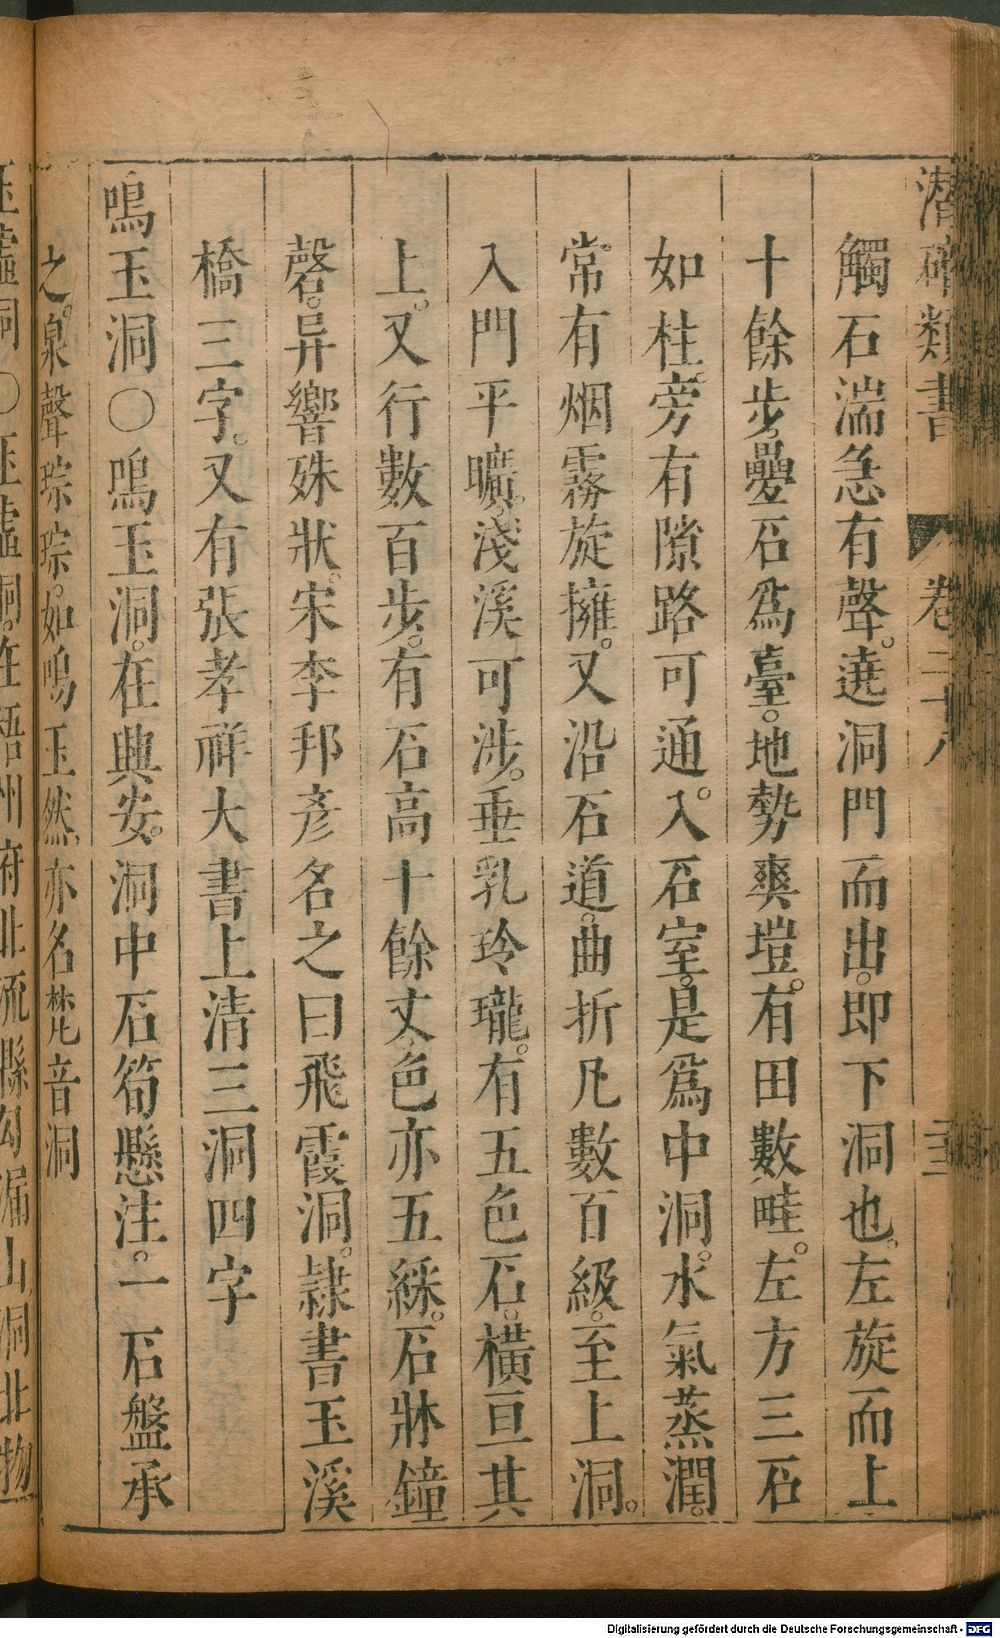 潛確類書 卷二十八 三三
觸石湍急有聲。遶洞門而出。即下洞也。左旋而上
十餘步。疊石爲臺。地勢爽塏。有田數畦。左方三石
如柱。旁有隙路可通。入石室。是爲中洞。水氣蒸潤。
常有烟霧旋擁。又沿石道。曲折凡數百級。至上洞。
入門平曠。淺溪可涉。垂乳玲瓏。有五色石。橫亘其
上。又行數百步。有石高十餘丈。色亦五綵。石牀鐘
磬。异響殊狀。宋李邦彥名之曰飛霞洞。隷書玉溪
橋三字。又有張孝祥大書上清三洞四字
鳴玉洞○鳴玉洞。在興安。洞中石筍懸注。一石盤承
之。泉聲琮琮。如鳴玉然。亦名梵音洞
玉虛洞○玉虛洞。在梧州府北流縣勾漏山洞北物
Digitalisierung gefördert durch die Deutsche Forschungsgemeinschaft - DFG